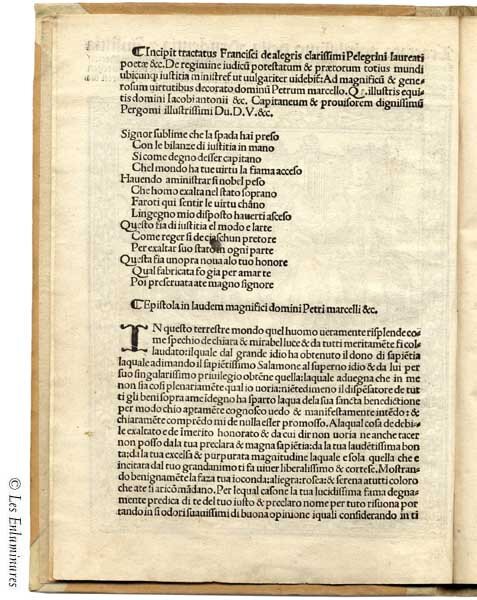 ¶Incipit tractatus Francisci de alegris clarissimi Pelegrini laureati
poetæ &c. De regimine iudicũ potestatum & prætorum totius mundi
ubicunqȝ iustitia ministret᷑ ut uulgariter uidebit᷑: Ad magnificũ & gene-
rosum uirtutibus decorato dominũ Petrum marcello. Q. illustris equi-
tis domini Iacobi antonii &c. Capitaneum & prouisorem dignissimũ
Pergomi illustrissimi Du. D. V. &c.
Signor sublime che la spada hai preso
Con le bilanze di iustitia in mano
Si come degno desser capitano
Chel mondo ha tue uirtu la fiama acceso
Hauendo aministrar si nobel peso
Che homo exalta nel stato soprano
Faroti qui sentir le uirtu chãno
Lingegno mio disposto hauerti asceso
Questo fia di iustitia el modo e larte
Come reger si de ciaschun pretore
Per exaltar suo stato in ogni parte
Questa fia unopra noua alo tuo honore
Qual fabricata fo gia per amar te
Poi preseruata ate magno signore
¶Epistola in laudem magnifici domini Petri marcelli &c.
IN questo terrestre mondo quel huomo ueramente risplende co-
me spechio de chiara & mirabel luce & da tutti meritamẽte fi col-
laudato: il quale dal grande idio ha obtenuto il dono di sapiẽtia
laquale adimando il sapiẽtissimo Salamone al superno idio & da lui per
suo singularissimo priuilegio obtẽne quella: laquale aduegna che in me
non sia cosi plenariamẽte qual io uoria: niẽtedimeno il dispẽsatore de tut
ti gli beni sopra ame idegno ha sparto laqua dela sua sancta benedictione
per modo chio aptamẽte cognosco uedo & manifestamente intẽdo: &
chiaramẽte comprẽdo mi de nulla esser promosso. Alaqual cosa de debi-
le exaltato e de imerito honorato & da cui dir non uoria ne anche tacer
non posso da la tua preclara & magna sapiẽtia: da la tua laudẽtissima bon
ta: da la tua excelsa & purpurata magnitudine laquale e sola quella che e
incitata dal tuo grandanimo ti fa uiuer liberalissimo & cortese. Mostran-
do benignamẽte la faza tua ioconda: alegra: rosea: & serena atutti coloro
che ate si aricõmãdano. Per lequal casone la tua lucidissima fama degna-
mente predica di te del tuo iusto & preclaro nome per tuto risuona por
tando in si odori suauissimi di buona opinione iquali considerando in ti
© Les Enluminures